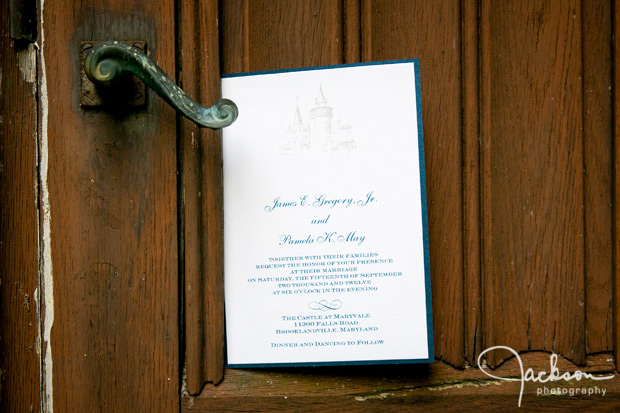 James E. Gregory, Jr.
and
Pamela K. May
TOGETHER WITH THEIR FAMILIES
REQUEST THE HONOR OF YOUR PRESENCE
AT THEIR MARRIAGE
ON SATURDAY, THE FIFTEENTH OF SEPTEMBER
TWO THOUSAND AND TWELVE
AT SIX O'CLOCK IN THE EVENING
THE CASTLE AT MARYVALE
11300 FALLS ROAD
BROOKLANDVILLE, MARYLAND
DINNER AND DANCING TO FOLLOW
Jackson
photography